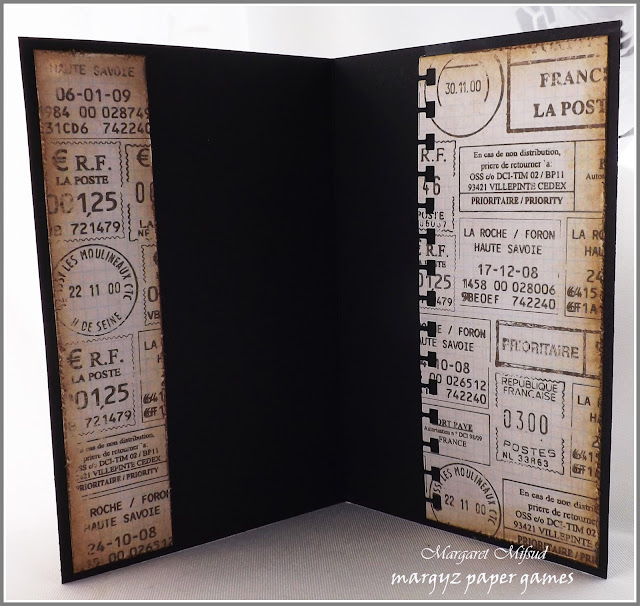 HAUTE SAVOIE
06-01-09
984 00 028749
31CD6 742240
€ R.F.
LA POSTE
00125
721479
LES MOULINEAUX CTC
22 11 00
H. DE SEINE
€ R.F.
LA POSTE
0125
721479
En cas de non distribution,
priere de retourner `a:
OSS c/o DCI-TIM 02 / BP11
93421 VILLEPINTE CEDEX
PRIORITAIRE / PRIORITY
ROCHE / FORON
HAUTE SAVOIE
24-10-08
00 026512
30.11.00
FRANCE
LA POSTE
En cas de non distribution,
priere de retourner `a:
OSS c/o DCI-TIM 02 / BP11
93421 VILLEPINTE CEDEX
PRIORITAIRE / PRIORITY
LA ROCHE / FORON
HAUTE SAVOIE
17-12-08
1458 00 028006
9BE0EF 742240
/ FORON
HAUTE SAVOIE
-10-08
00 026512
742240
PRIORITAIRE
REPUBLIQUE
FRANCAISE
0300
POSTES
NL 33863
PORT PAYE
FRANCE
LES MOULINEAUX
22 11 00
En cas de non
priere de retourner
OSS c/o DCI-TIM 02 /
93421 VILLEPINTE
PRIORITAIRE /
Margaret Mifsud
margyz paper games